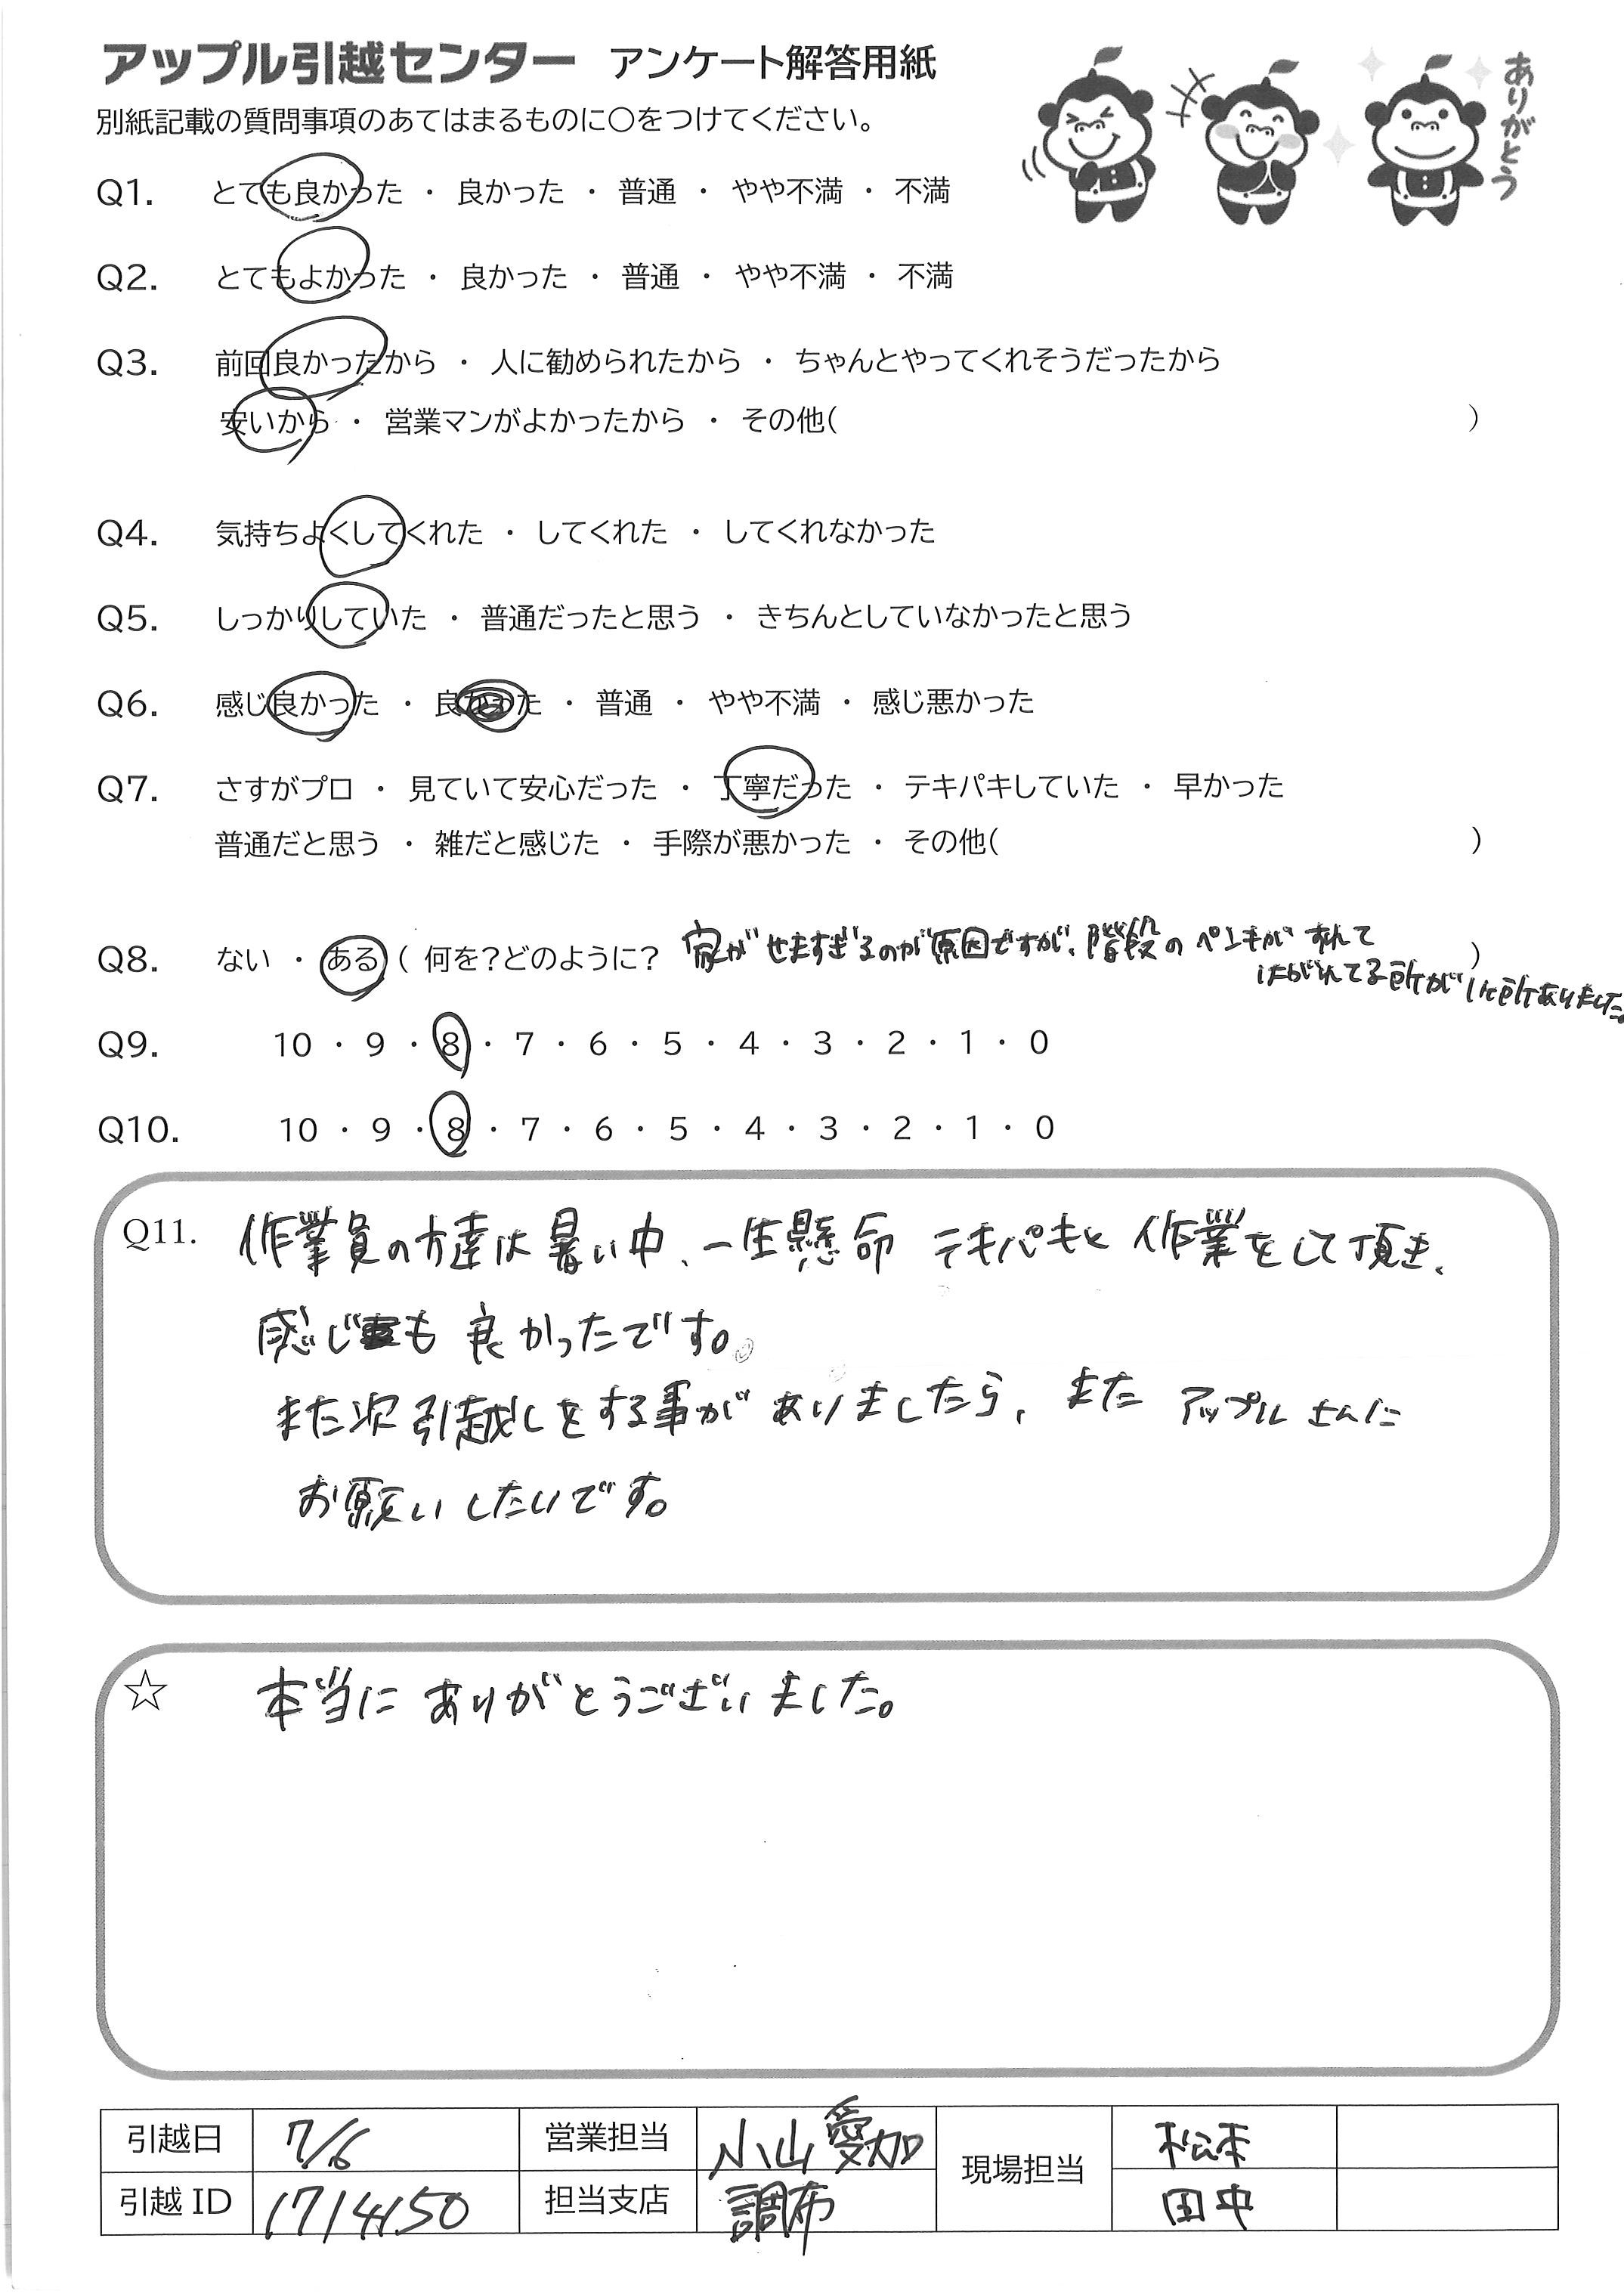 アップル引越センター アンケート解答用紙
ありがとう
別紙記載の質問事項のあてはまるものに○をつけてください。
Q1. とても良かった ・ 良かった ・ 普通 ・ やや不満 ・ 不満
Q2. とてもよかった ・ 良かった ・ 普通 ・ やや不満 ・ 不満
Q3. 前回良かったから ・ 人に勧められたから ・ ちゃんとやってくれそうだったから
安いから ・ 営業マンがよかったから ・ その他( )
Q4. 気持ちよくしてくれた ・ してくれた ・ してくれなかった
Q5. しっかりしていた ・ 普通だったと思う ・ きちんとしていなかったと思う
Q6. 感じ良かった ・ 良かった ・ 普通 ・ やや不満 ・ 感じ悪かった
Q7. さすがプロ ・ 見ていて安心だった ・ 丁寧だった ・ テキパキしていた ・ 早かった
普通だと思う ・ 雑だと感じた ・ 手際が悪かった ・ その他( )
Q8. ない ・ ある ( 何を?どのように? 家がせますぎるのが原因ですが、階段のペンキがすれて )
はがれてる所が1ヶ所ありました。
Q9. 10 ・ 9 ・ 8 ・ 7 ・ 6 ・ 5 ・ 4 ・ 3 ・ 2 ・ 1 ・ 0
Q10. 10 ・ 9 ・ 8 ・ 7 ・ 6 ・ 5 ・ 4 ・ 3 ・ 2 ・ 1 ・ 0
Q11. 作業員の方達は暑い中、一生懸命 テキパキと 作業をして頂き、
感じも 良かったです。
また次 引越しをする事が ありましたら、また アップルさんに
お願いしたいです。
☆ 本当に ありがとうございました。
引越日 7/6 営業担当 小山愛加 現場担当 松本
引越ID 1714150 担当支店 調布 田中